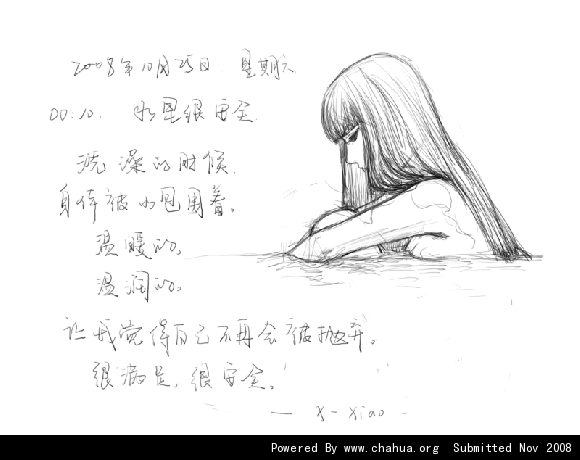 2008年10月25日 星期六
00:10. 水里很安全.
洗澡的时候.
身体被水包围着。
温暖的。
温润的。
让我觉得自己不再会被抛弃。
很满足，很安全。
— X-Xiao —
Powered By www.chahua.org Submitted Nov 2008